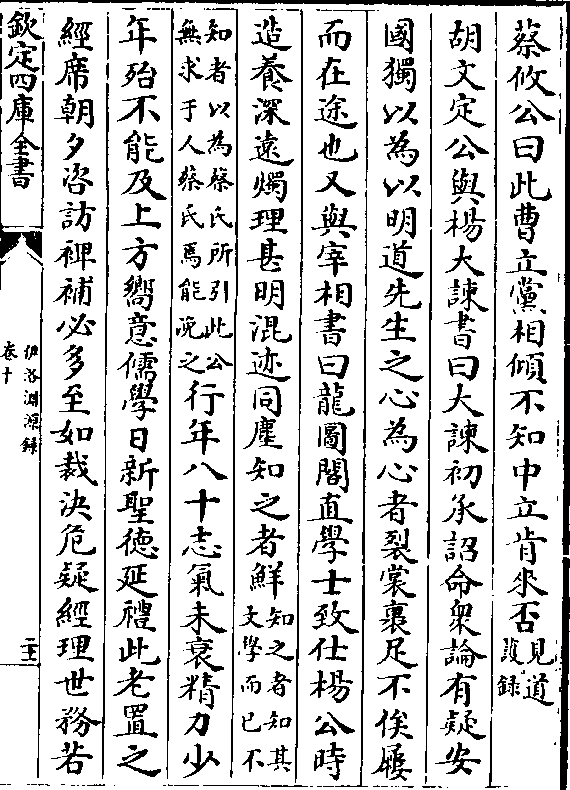 蔡攸公曰此曹立黨相傾不知中立肯來否見道護録
胡文定公與楊大諫書曰大諫初承詔命衆論有疑安
國獨以為以明道先生之心為心者裂裳裹足不俟屨
而在途也又與宰相書曰龍圖閣直學士致仕楊公時
造養深遠燭理甚明混迹同塵知之者鮮知之者知其文學而已不
知者以為蔡氏所引此公無求于人蔡氏焉能浼之行年八十志氣未衰精力少
年殆不能及上方嚮意儒學日新聖德延禮此老置之
經席朝夕咨訪裨補必多至如裁決危疑經理世務若
欽定四庫全書
伊洛淵源録
卷十
二十二